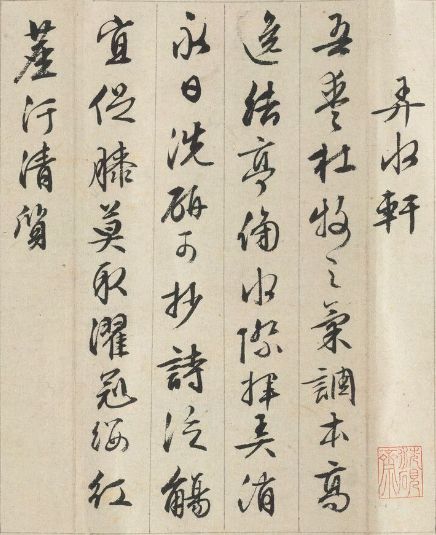 弄水軒
吾愛杜牧之氣調本高
逸結亭侵水際揮弄消
永日洗研可抄詩泛觴
宜促膝莫取濯冠纓紅
塵汙清質